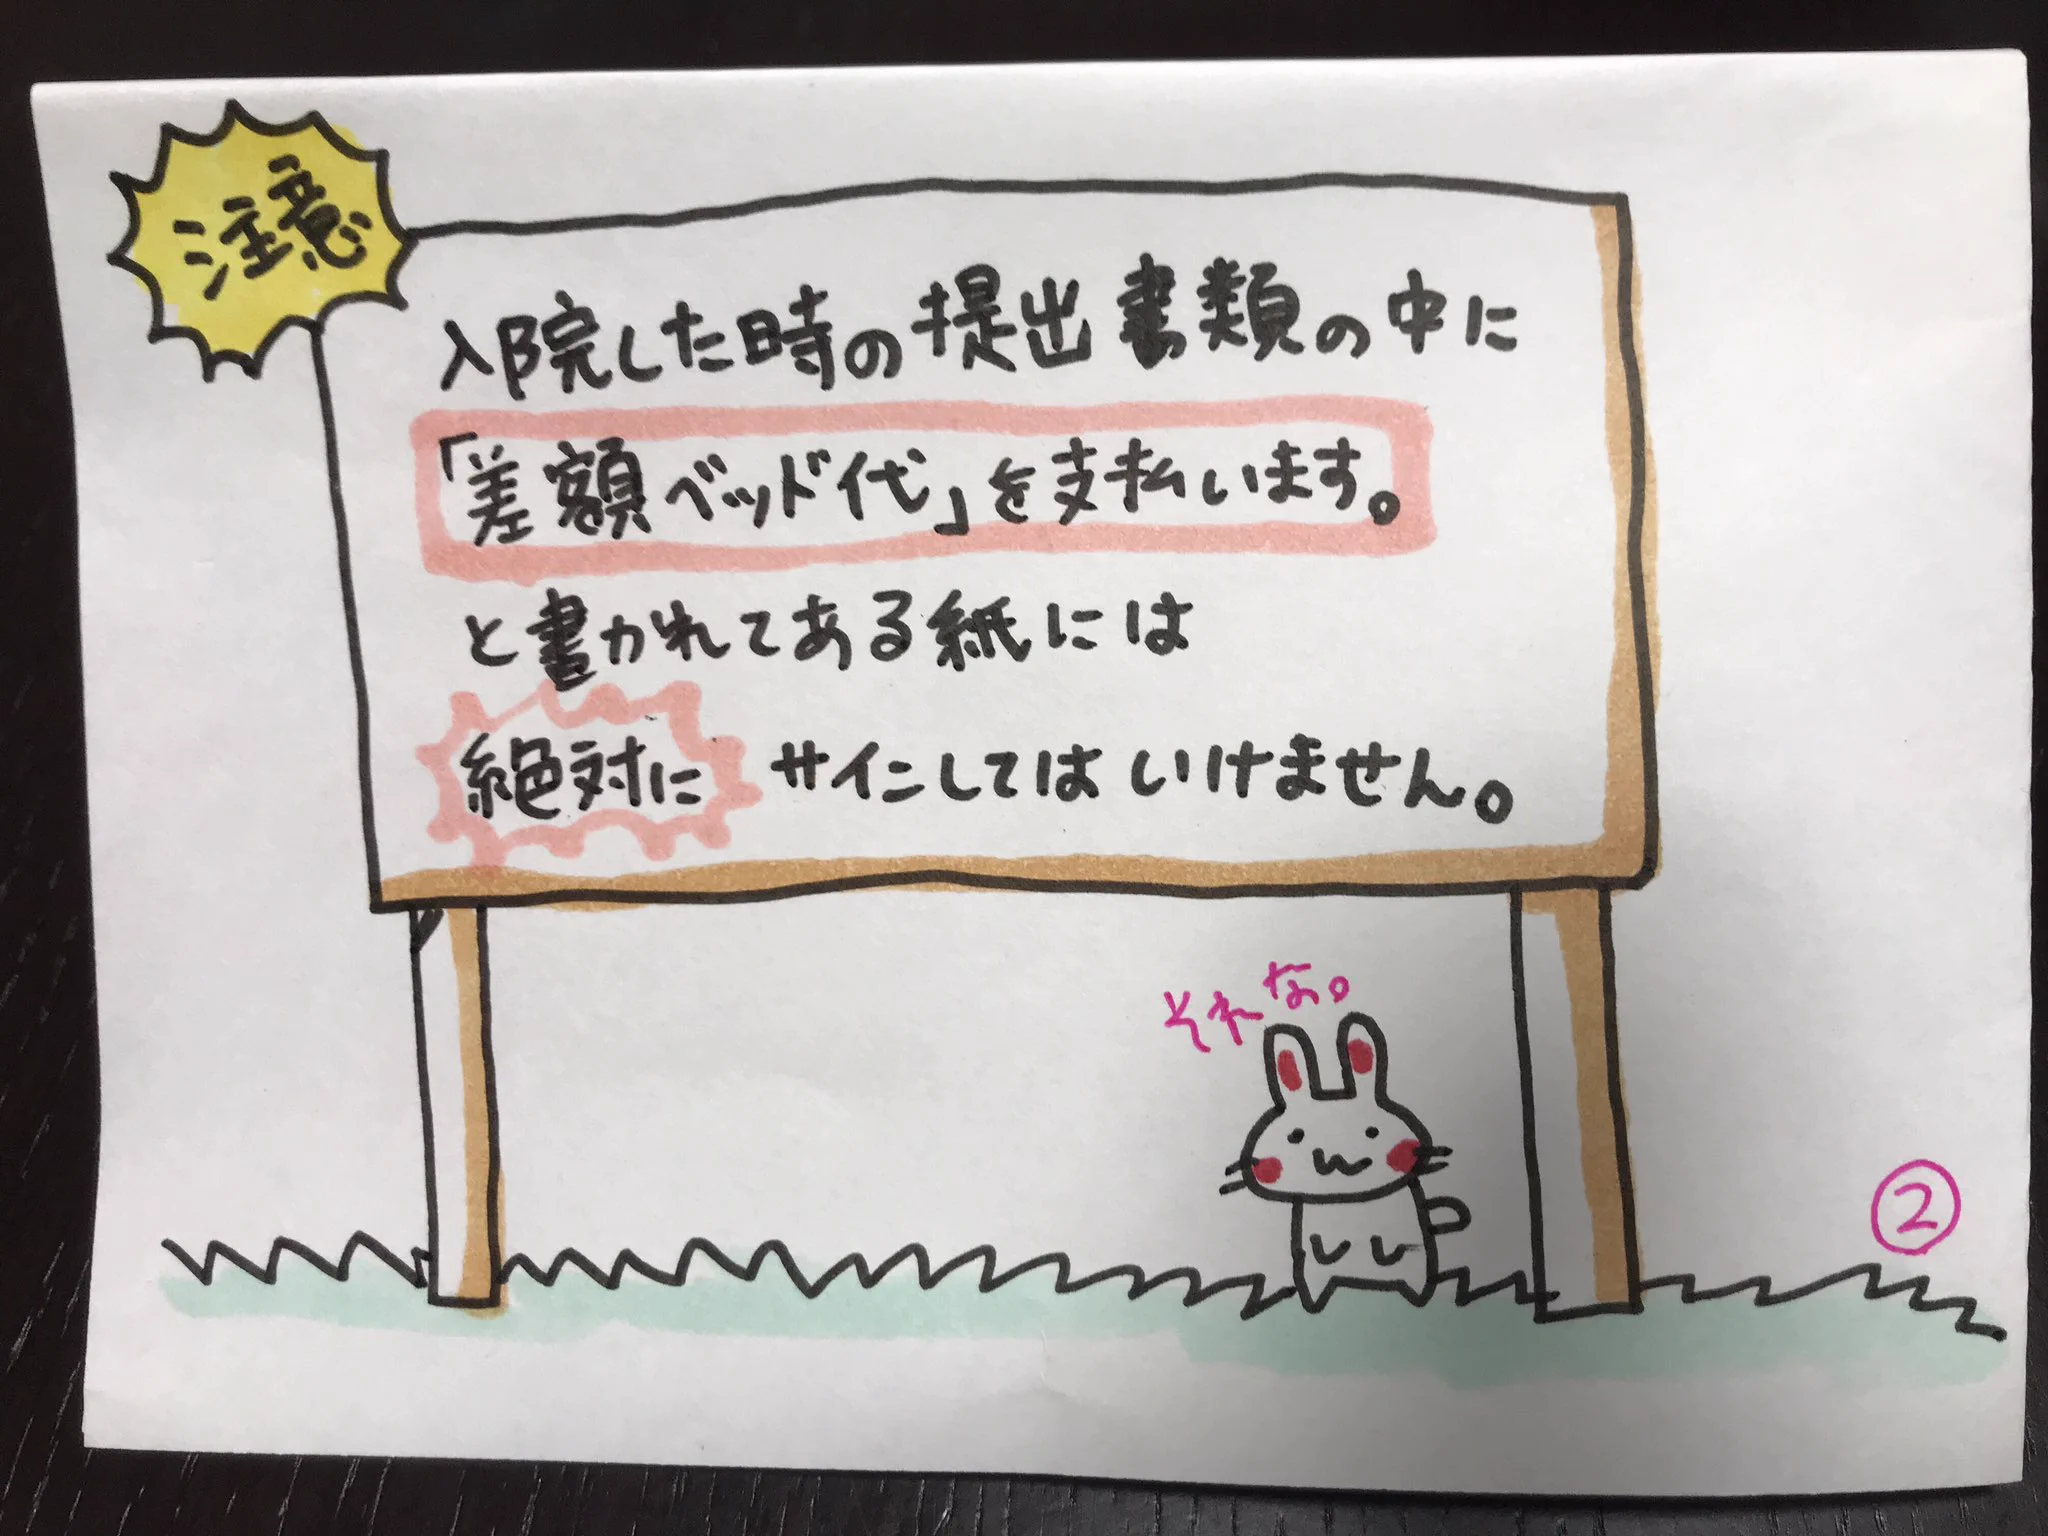 注意
入院した時の提出書類の中に
「差額ベッド代」を支払います。
と書かれてある紙には
絶対に サインしてはいけません。
それな。
②